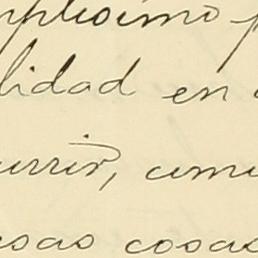 mplisimo p
lidad en
urrir, com
esas cosas